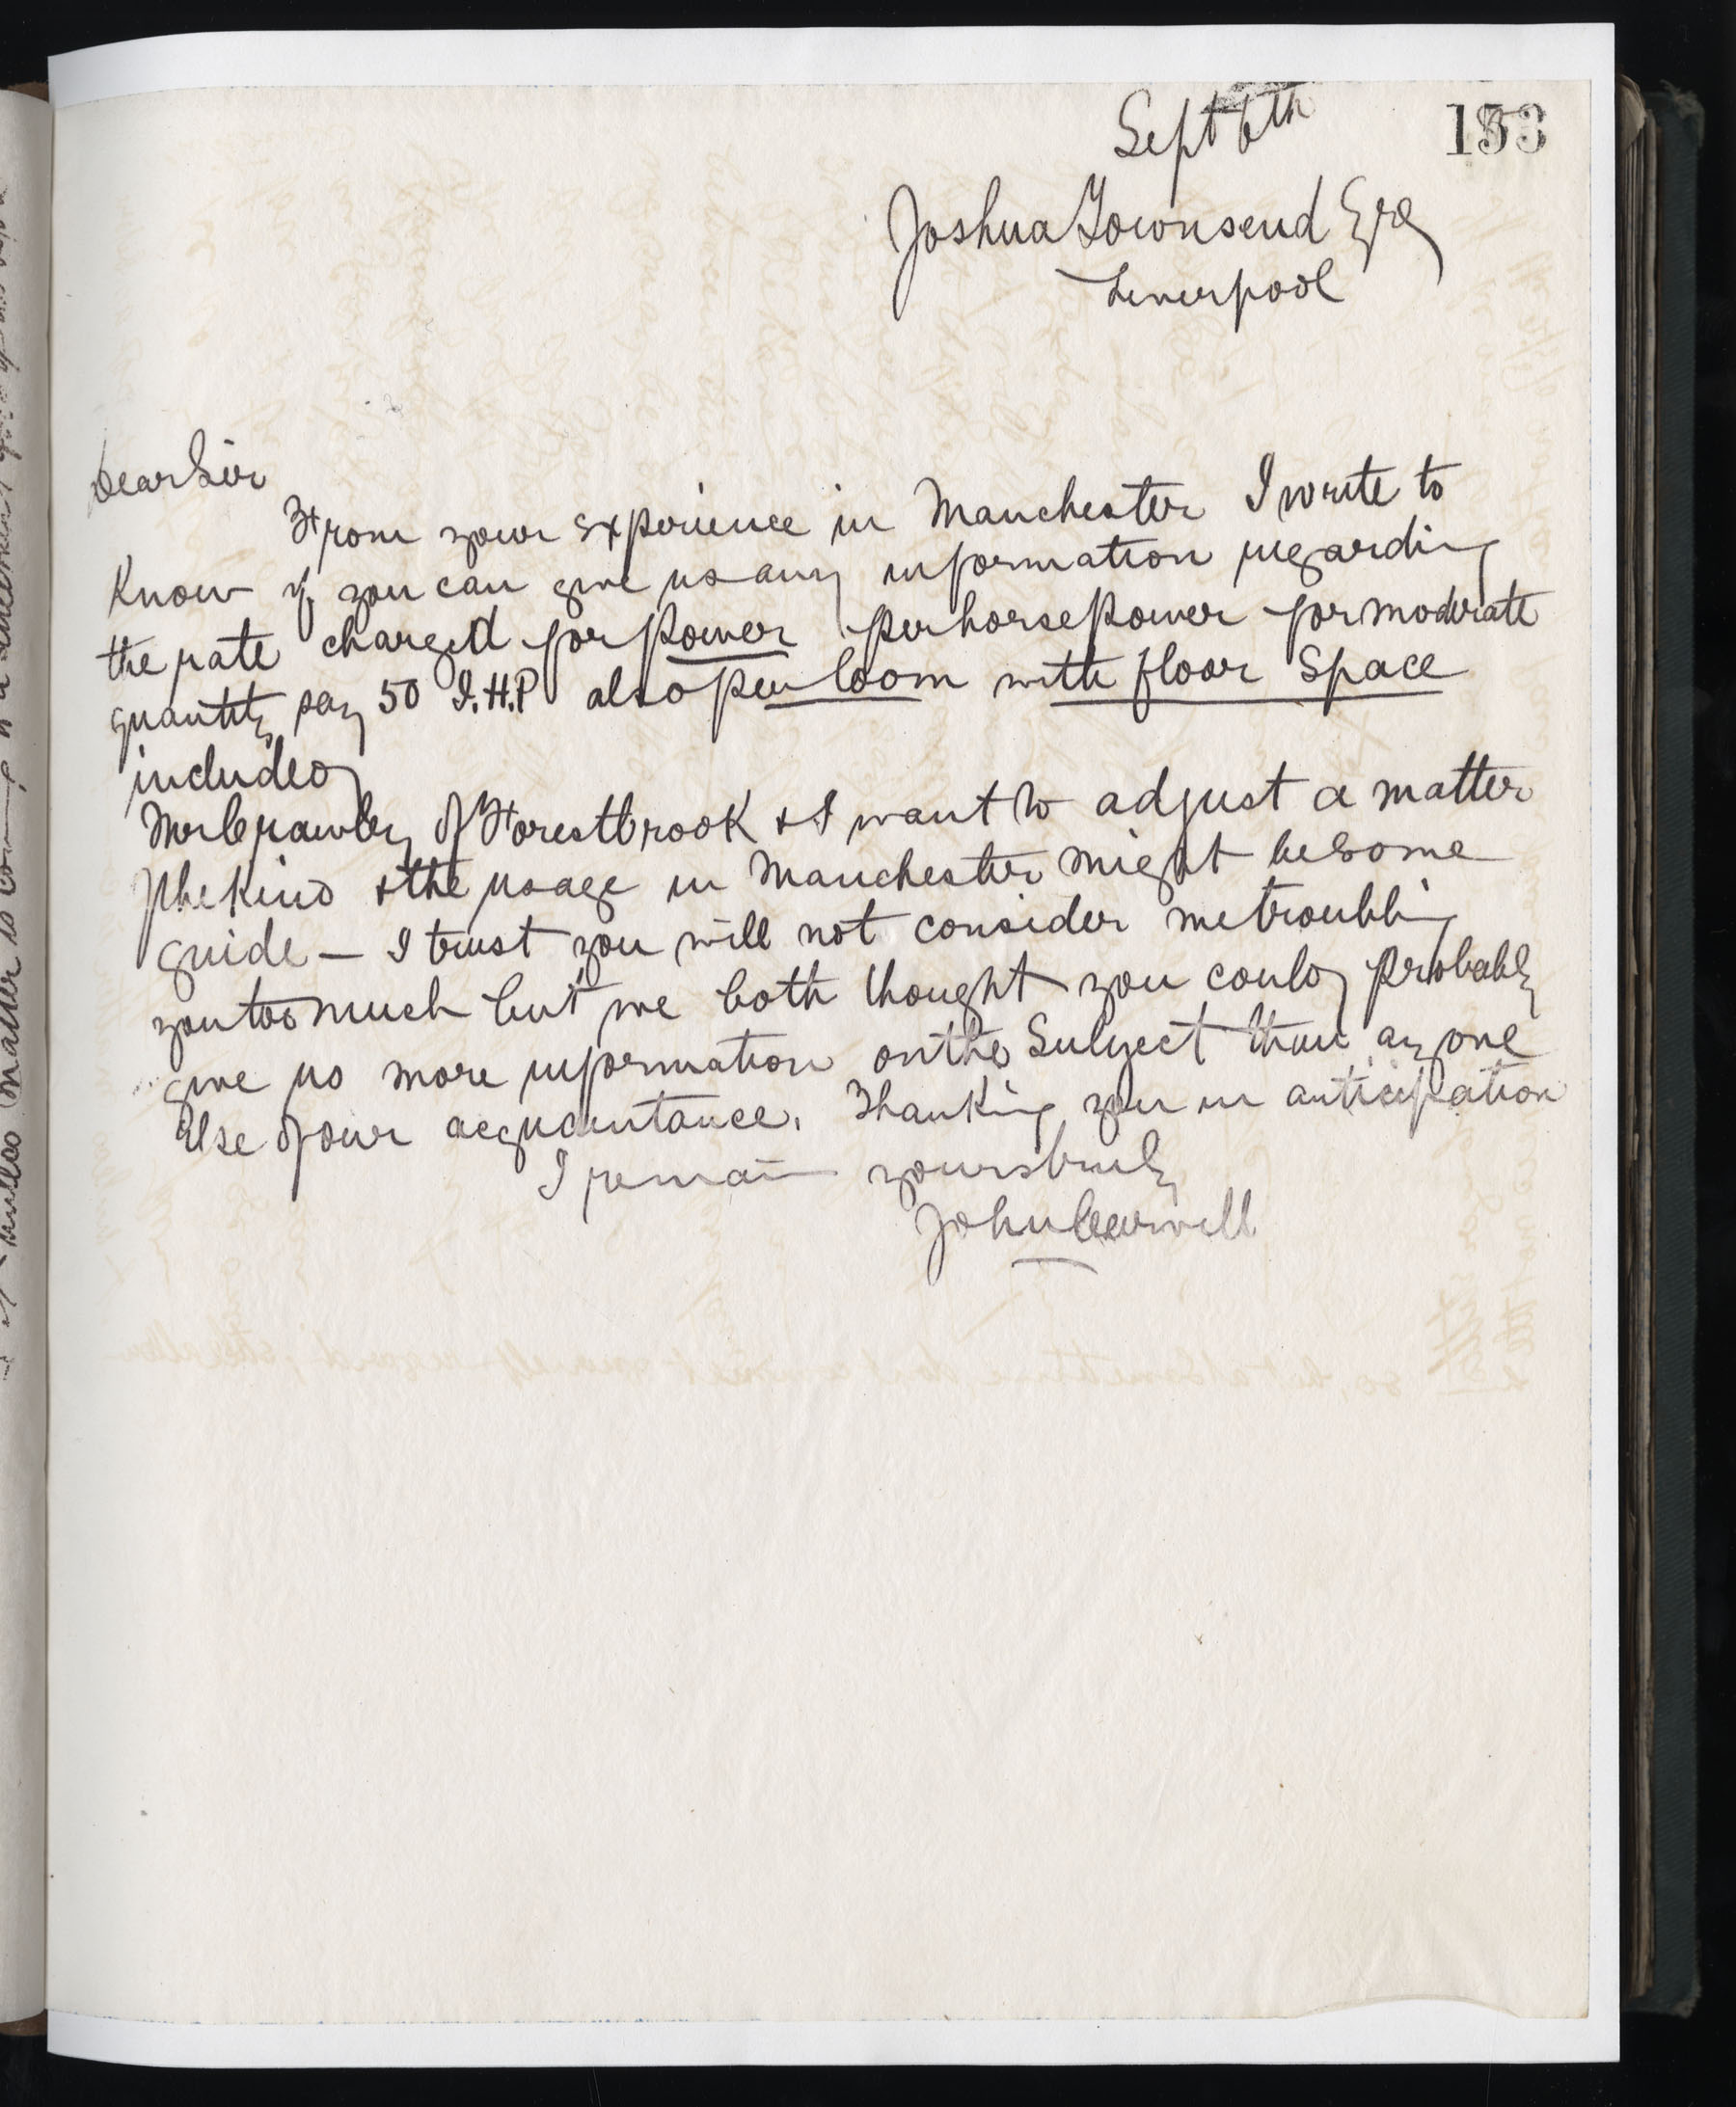 Sept 6th
Joshua Townsend Esq
Liverpool
Dear Sir
From your experience in Manchester I write to
know if you can give us any information regarding
the rate charged for power per horse power for moderate
quantity say 50 I.H.P also per loom with floor space
included
Mr Crawley of Forestbrook & I want to adjust a matter
of the kind & the usage in Manchester might be some
guide — I trust you will not consider me troubling
you too much but we both thought you could probably
give us more information on the subject than any one
else of our acquaintance. Thanking you in anticipation
I remain yours truly
John